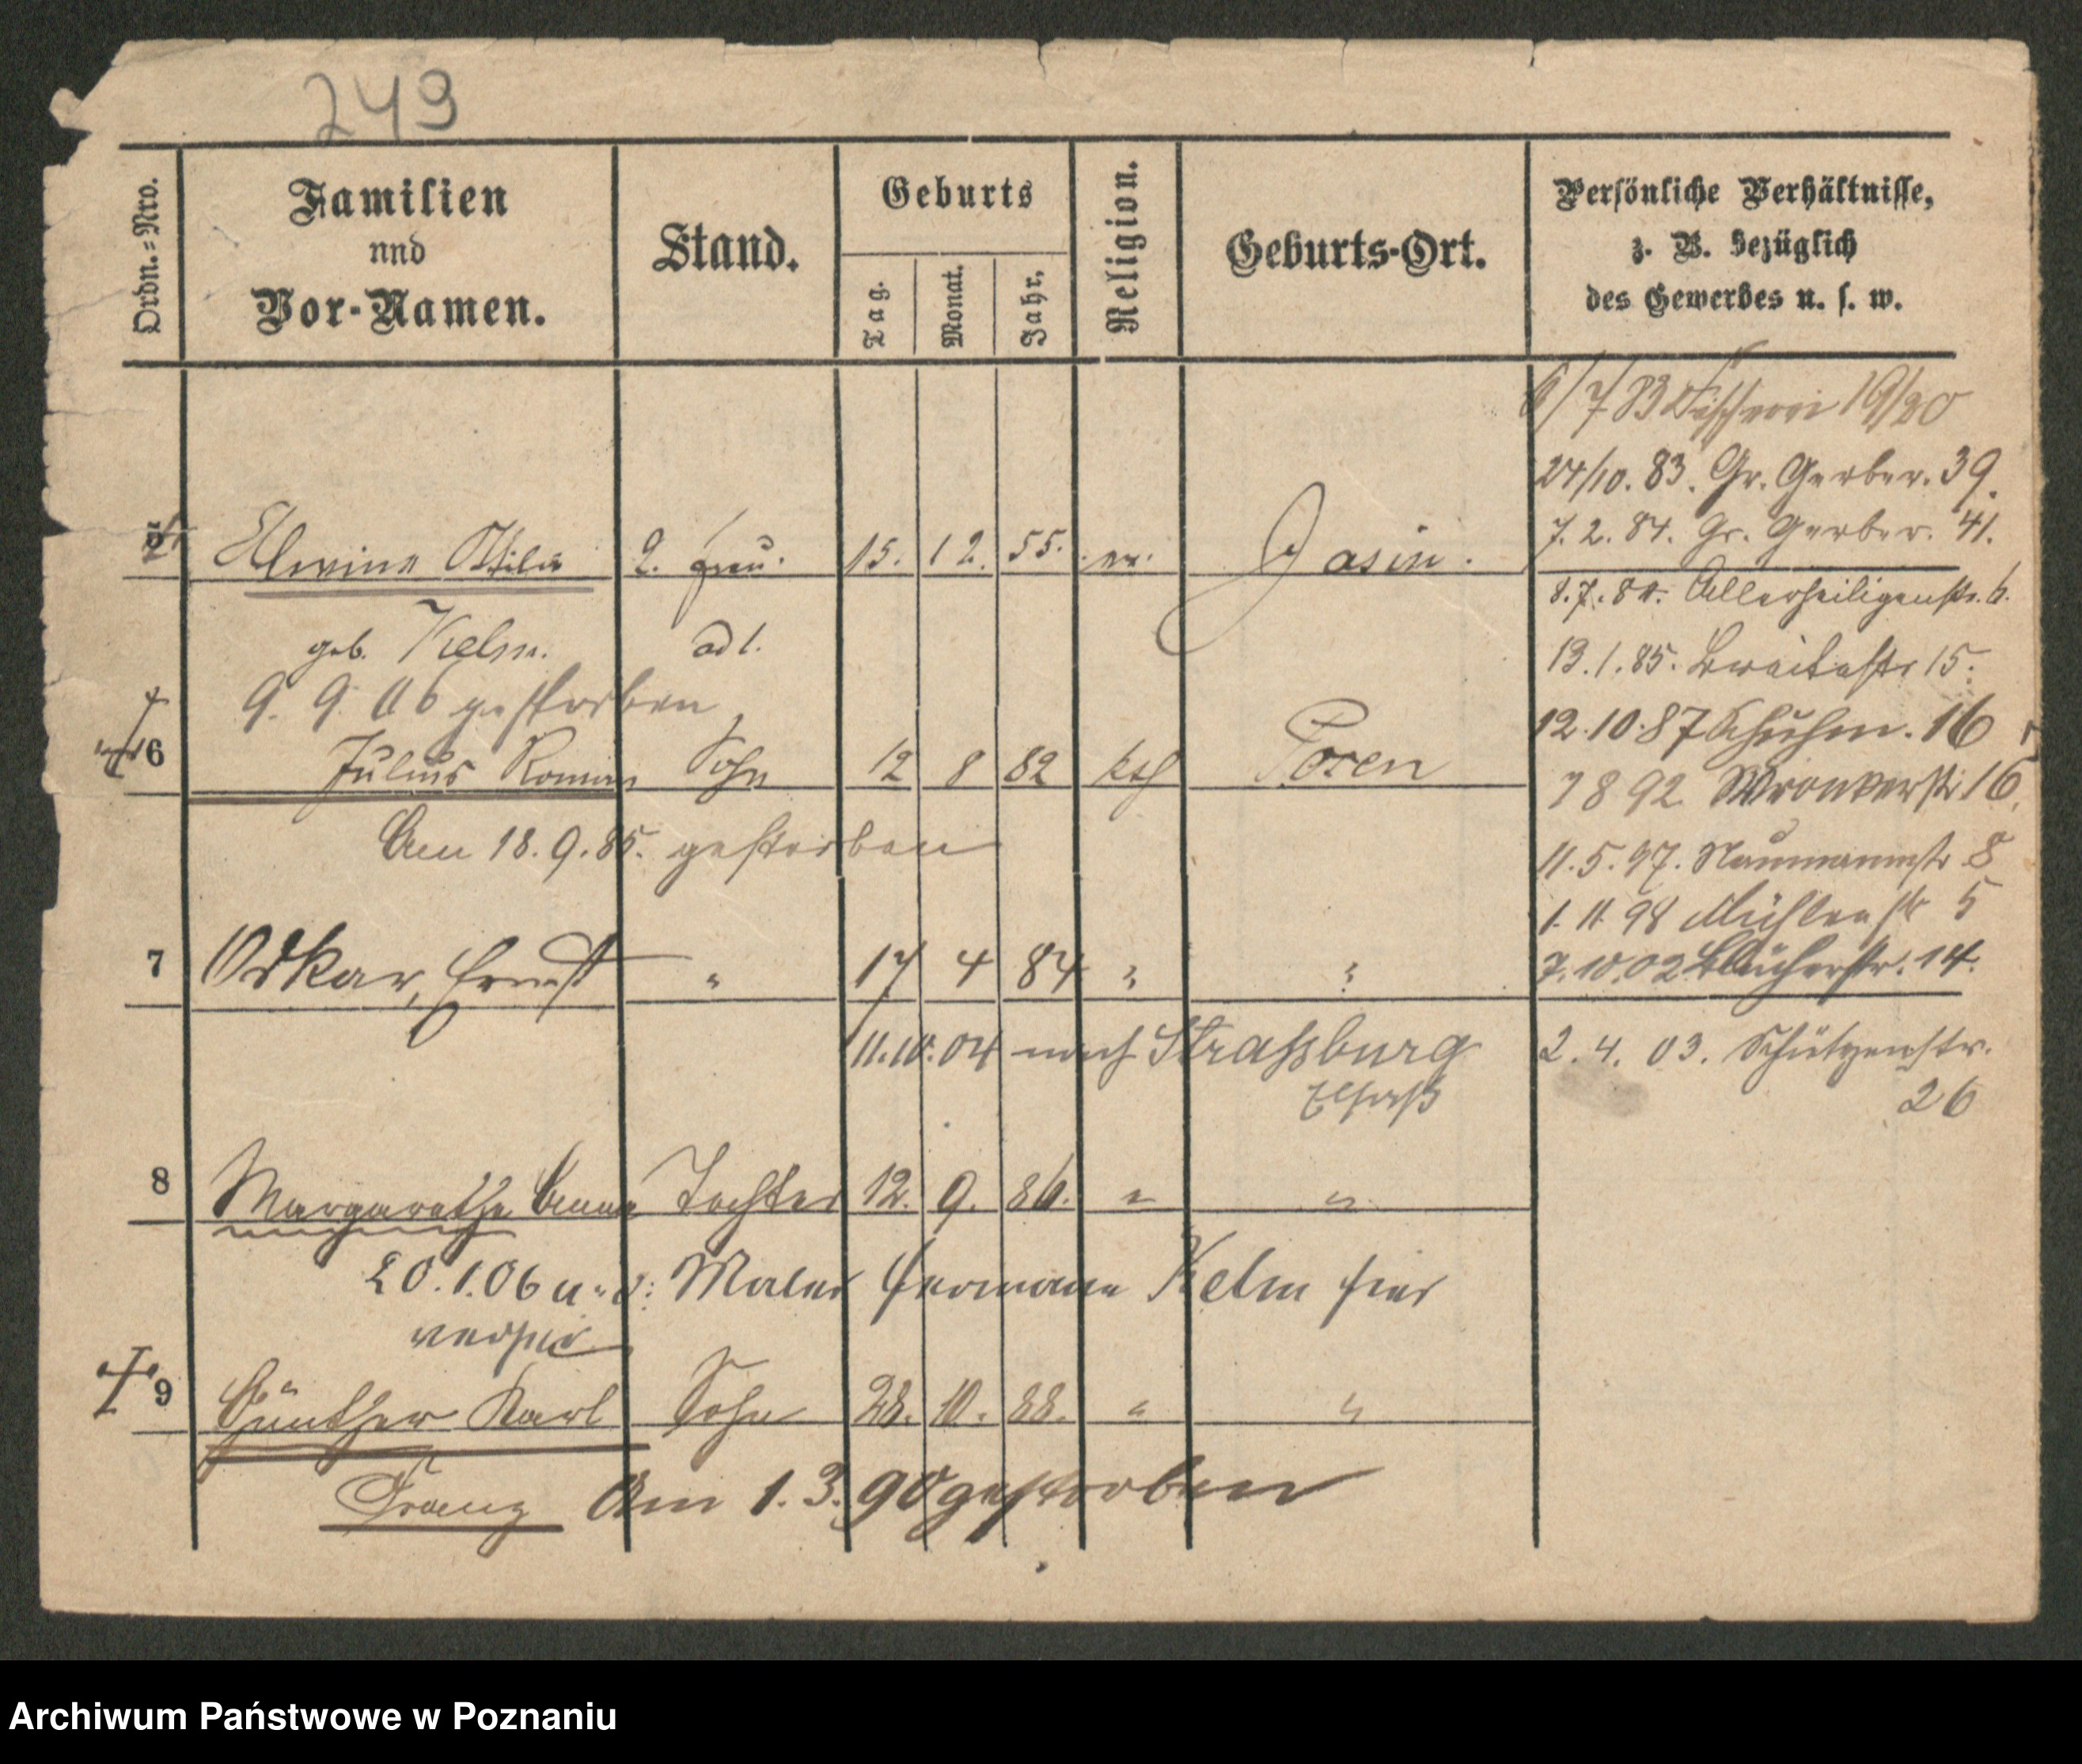 249
Ordn.=Nro.
Familien
nnd
Vor-Namen.
Stand.
Geburts
Tag.
Monat.
Jahr.
Religion.
Geburts-Ort.
Persönliche Verhältnisse,
z. B. bezüglich
des Gewerbes u. s. w.
6/7 83 Fischerei 19/20
24/10. 83. Gr. Gerber. 39.
7. 2. 84. Gr. Gerber. 41.
5 Elwine Ottilie 2. Frau. 15. 12. 55. ev. Gasin.
8. 7. 84. Allerheiligenstr. 6.
geb. Kelm. ad 1.
13. 1. 85. Breitestr 15.
9. 9. 06 gestorben
12. 10. 87 Schuhm. 16
6 Julius Roman Sohn 12 8 82 kth Posen
7 8 92 Wronkerstr 16.
Am 18. 9. 85. gestorben
11. 5. 97. Naumannstr 8
1. 11 98 Mühlenstr 5
7 Oskar, Ernst " 17 4 84 " "
7. 10. 02 Blücherstr. 14.
11. 10. 04 nach Straßburg
Elsaß
2. 4. 03. Schützenstr.
26
8 Margarethe Anna Tochter 12. 9. 86. " "
20. 1. 06 Maler Hermann Kelm hier
9 Günther Karl Sohn 28. 10. 88. " "
Franz Am 1. 3. 90 gestorben
Archiwum Państwowe w Poznaniu